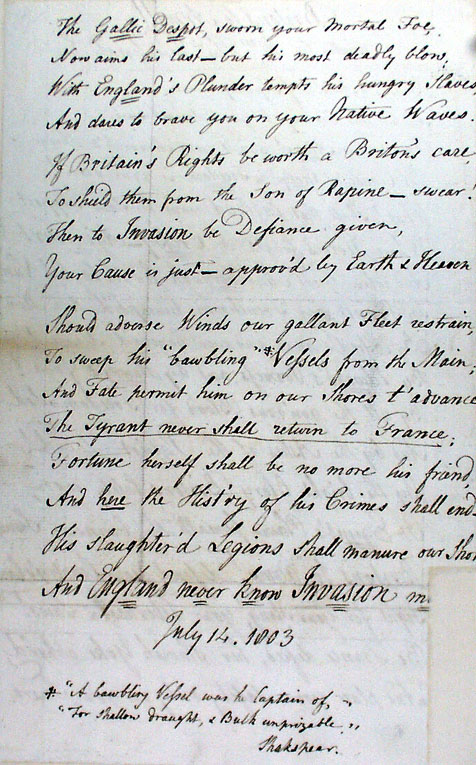 The Gallic Despot, sworn your Mortal Foe,
Now aims his last — but his most deadly blow,
With England's Plunder tempts his hungry Slaves
And dares to brave you on your Native Waves.
If Britain's Rights be worth a Briton's care,
To shield them from the Son of Rapine — swear.
Then to Invasion be Defiance given,
Your Cause is just — approv'd by Earth & Heaven
Should adverse Winds our gallant Fleet restrain,
To sweep his "bawbling" * Vessels from the Main;
And Fate permit him on our Shores t' advance
The Tyrant never shall return to France;
Fortune herself shall be no more his friend,
And here the Hist'ry of his Crimes shall end.
His slaughter'd Legions shall manure our
And England never know Invasion
July 14. 1803
* "A bawbling Vessel was he Captain of, "
"For shallow draught, & Bulk unprizable. "
Shakspear.